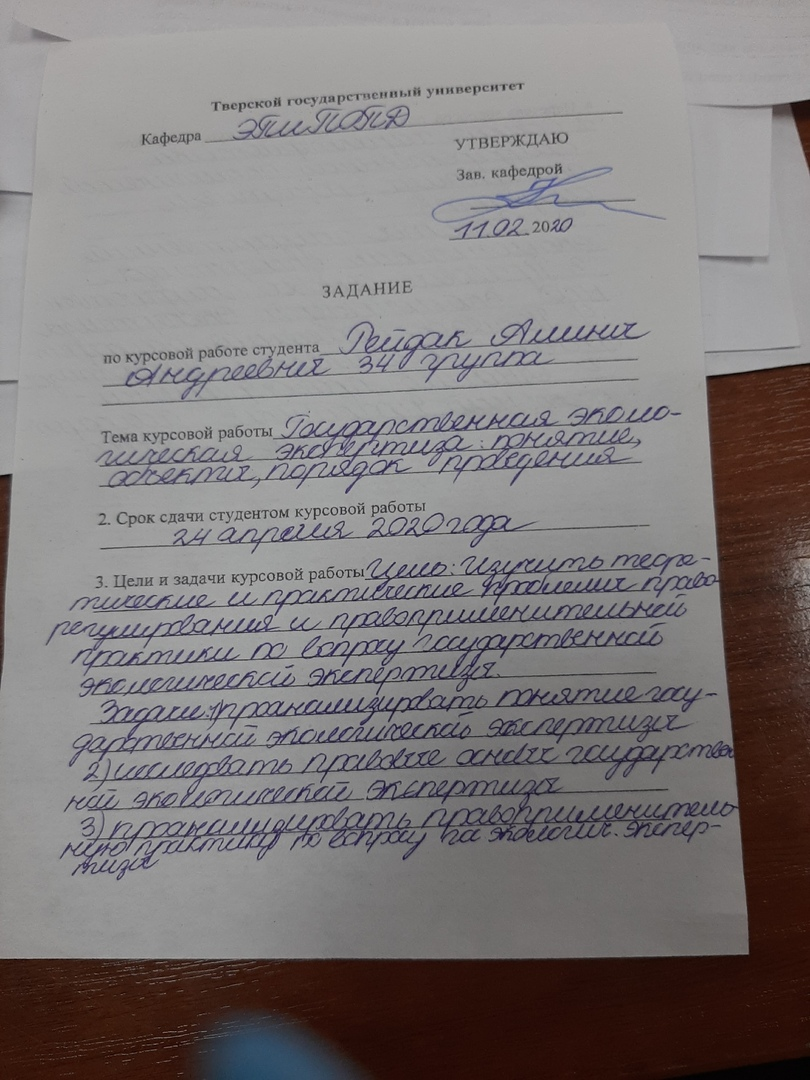 Тверской государственный университет
Кафедра ЭПиПОПД
УТВЕРЖДАЮ
Зав. кафедрой
11.02.2020
ЗАДАНИЕ
по курсовой работе студента Рейдак Алины
Андреевны 34 группа
Тема курсовой работы Государственная эколо-
гическая экспертиза: понятие,
объекты, порядок проведения
2. Срок сдачи студентом курсовой работы
24 апреля 2020 года
3. Цели и задачи курсовой работы Цель: Изучить теоре-
тические и практические проблемы право
регулирования и правоприменительной
практики по вопросу государственной
экологической экспертизы.
Задачи: 1) проанализировать понятие госу-
дарственной экологической экспертизы
2) исследовать правовые основы государствен
ной экологической экспертизы
3) проанализировать правоприменитель-
ную практику по вопросу гос экологич. экспер-
тизы